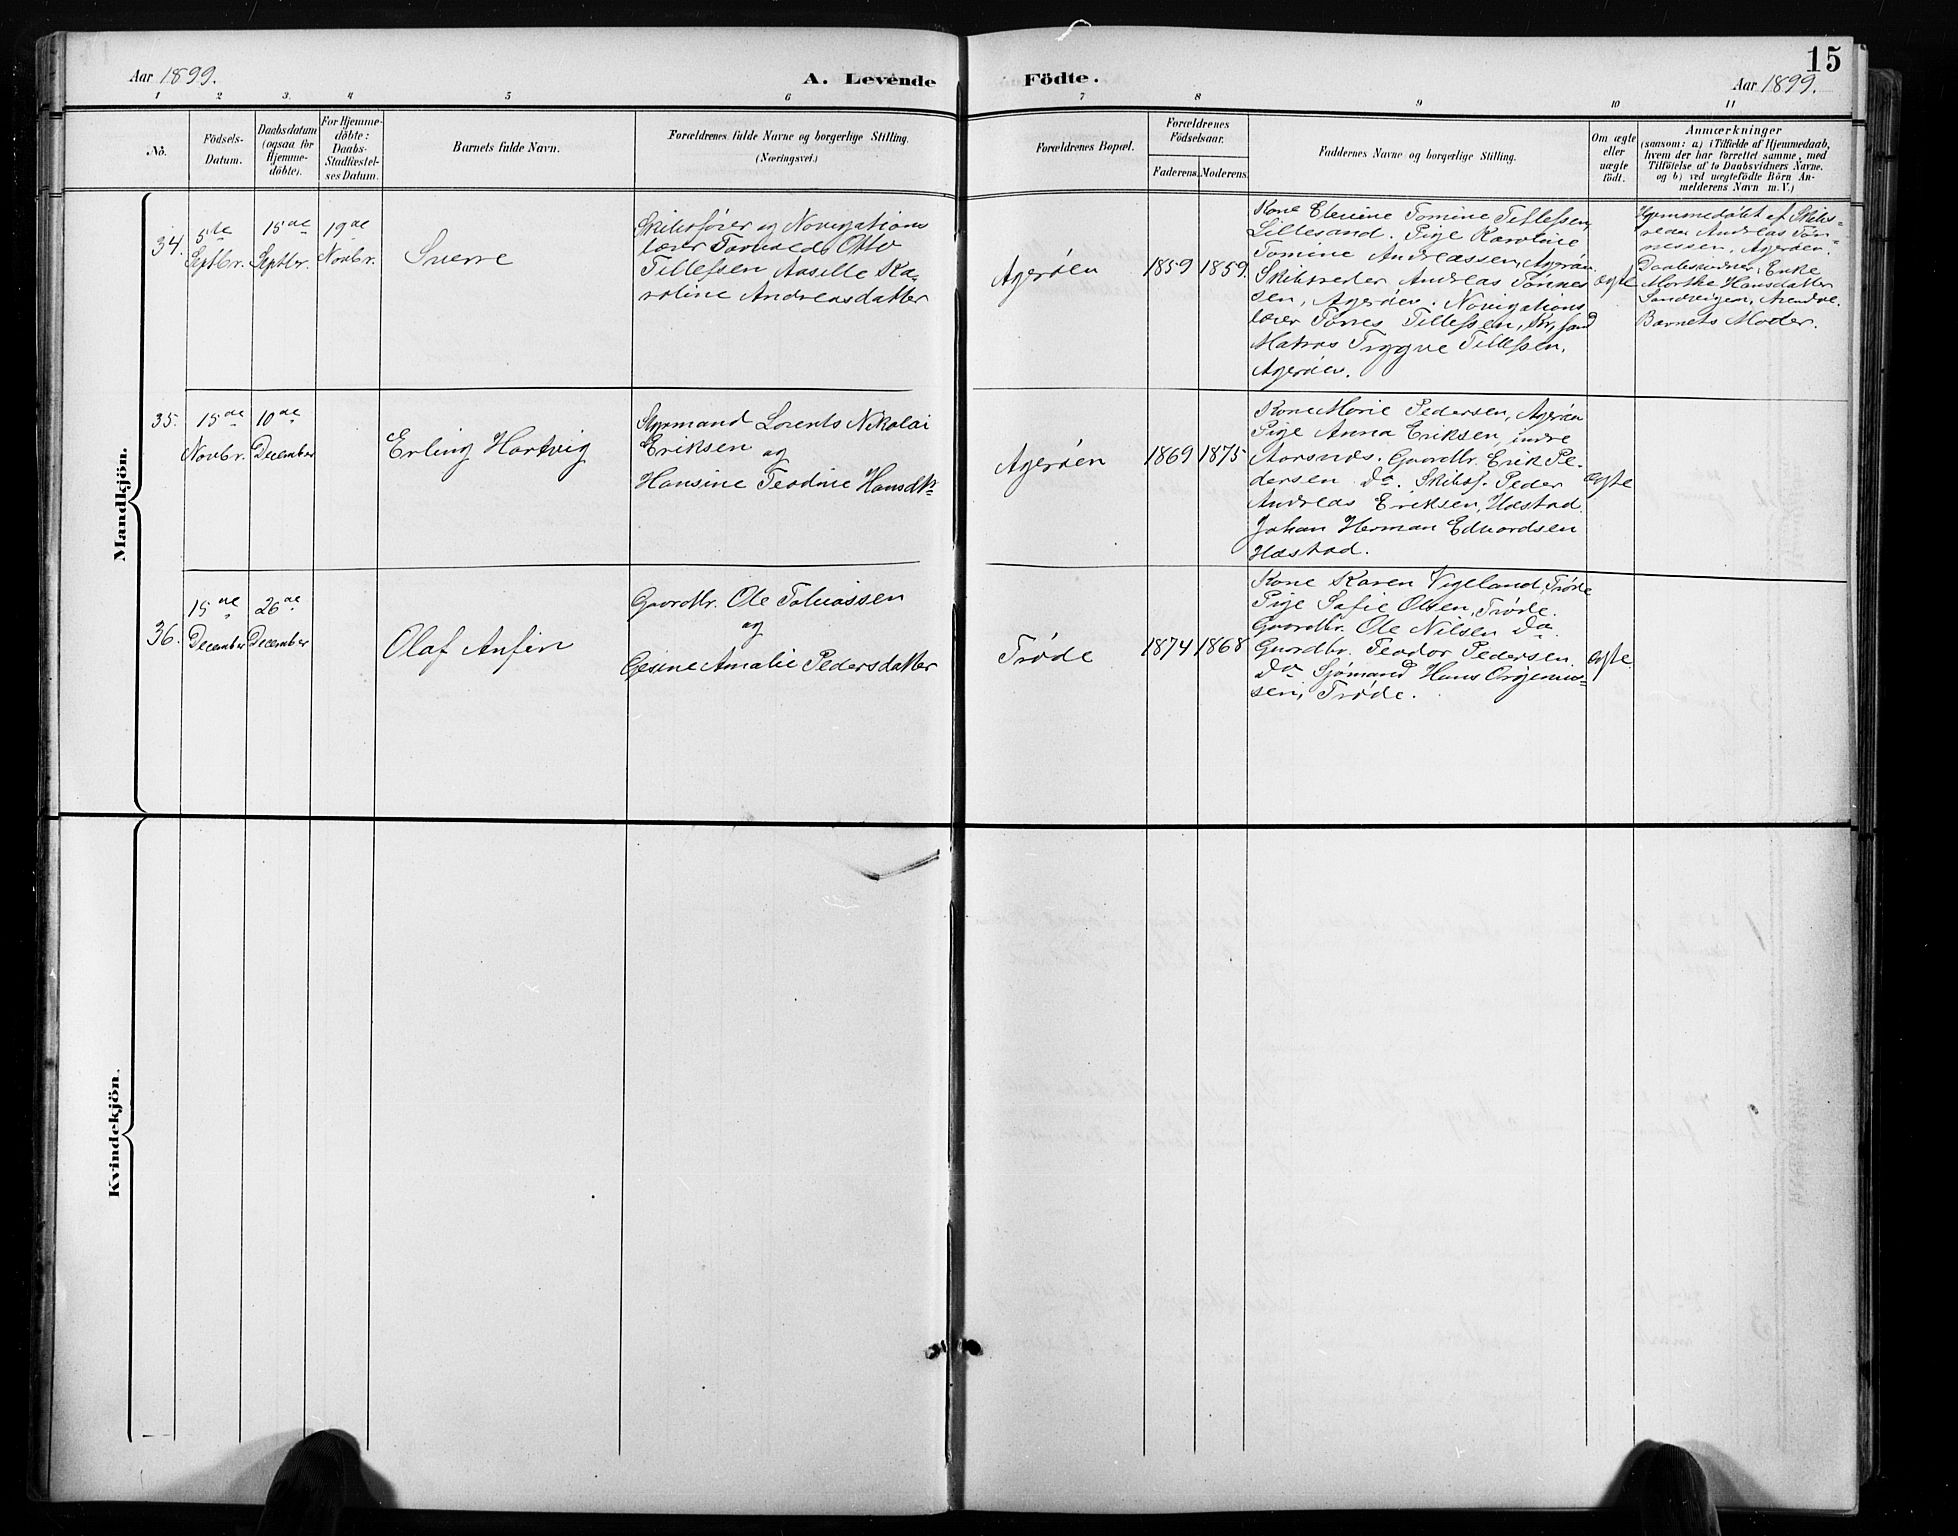 Aar 1899.
A. Levende Födte.
15
Aar 1899.
1 2 3. 4 5 6 7 8 9 10 11
No.
Födsels-
Datum.
Daabsdatum
(ogsaa for
Hjemme-
döbte).
For Hjemme-
döbte:
Daabs-
Stadfæstel-
ses Datum.
Barnets fulde Navn.
Forældrenes fulde Navne og borgerlige Stilling.
(Næringsvei.)
Forældrenes Bopæl.
Forældrenes
Födselsaar.
Faderens. Moderens.
Faddernes Navne og borgerlige Stilling.
Om ægte
eller
uægte
födt.
Anmærkninger
(saasom: a) i Tilfælde af Hjemmedaab,
hvem der har forrettet samme, med
Tilföielse af to Daabsvidners Navne.
og b) ved uægtefödte Börn An-
melderens Navn m. V.)
Mandkjön.
34.
5te
Septbr.
15de
Septbr.
19de
Novbr.
Sverre
Skibsfører og Navigations
lærer Torvald Otto
Tillefsen Aasille Ka-
roline Andreasdatter
Agerøen
1859
1859.
Kone Elevine Tomine Tillefsen,
Lillesand. Pige Karoline
Tomine Andreassen, Agerøn
Skibsreder Andreas Tønnes
sen, Agerøen. Navigations
lærer Tørres Tillefsen, Kr,sand
Matros Trygve Tillefsen,
Agerøen.
ægte
Hjemmedøbt af Skibs-
reder Andreas Tøn-
nessen, Agerøen.
Daabsvidner: Enke
Marthe Hansdatter
Sandvigen, Arendal.
Barnets Moder.
35.
15de
Novbr.
10de
December
Erling Hartvig
Styrmand Lorents Nikolai
Eriksen
og
Hansine Teodine Hansdtr
Agerøen
1869
1875
Kone Marie Pedersen, Agerøn
Pige Anna Eriksen, indre
Aarsnes. Gaardbr. Erik Pe-
dersen do. Skibsf. Peder
Andreas Eriksen, Hæstad.
Johan Herman Edvardsen
Hæstad.
ægte
36.
15de
December
26de
December
Olaf Anfin
Gaardbr. Ole Tobiassen
og
Gesine Amalie Pedersdatter
Trøde
1874
1868
Kone Karen Vigeland, Trøde
Pige Sofie Olsen, Trøde.
Gaardbr. Ole Nilsen do.
Gaardbr. Teodor Pedersen.
do. Sjømand Hans
sen, Trøde.
ægte.
Kvindekjön.